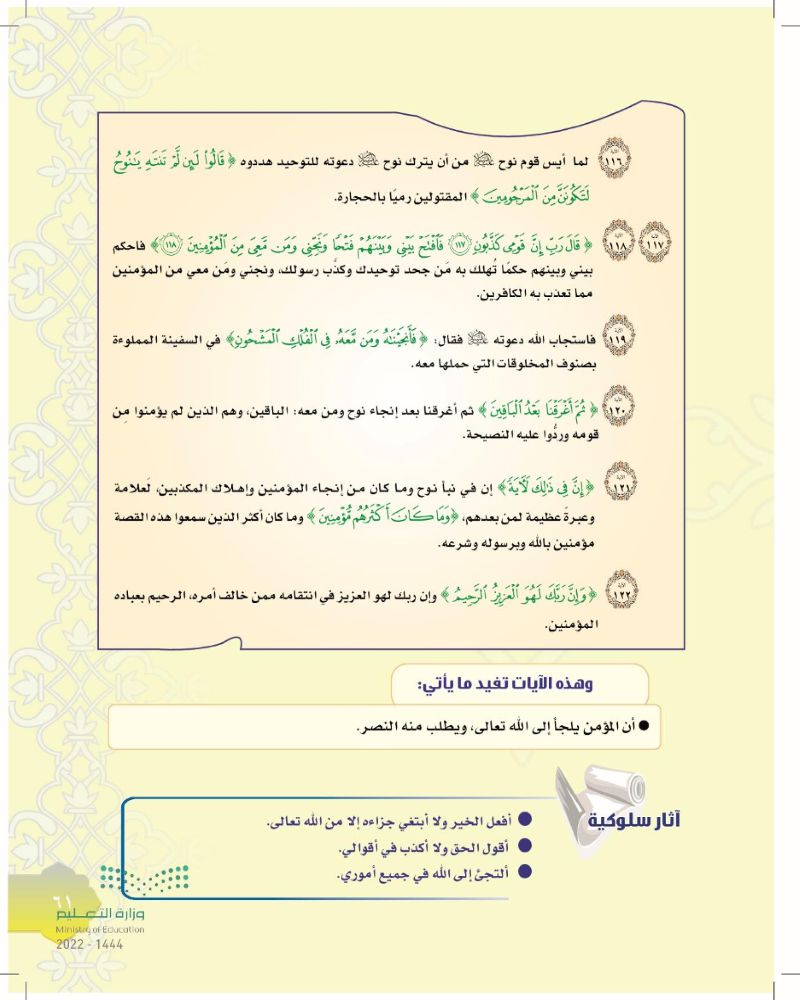 ١١٦ لما أيس قوم نوح ﷺ من أن يترك نوح ﷺ دعوته للتوحيد هددوه ﴿ قَالُوا۟ لَئِن لَّمْ تَنتَهِ يَٰنُوحُ
لَتَكُونَنَّ مِنَ ٱلْمَرْجُومِينَ ﴾ المقتولين رميًا بالحجارة.
١١٧ ١١٨ ﴿ قَالَ رَبِّ إِنَّ قَوْمِى كَذَّبُونِ ١١٧ فَٱفْتَحْ بَيْنِى وَبَيْنَهُمْ فَتْحًا وَنَجِّنِى وَمَن مَّعِىَ مِنَ ٱلْمُؤْمِنِينَ ١١٨ ﴾ فاحكم
بيني وبينهم حكمًا تُهلك به مَن جحد توحيدك وكذَّب رسولك، ونجني ومَن معي من المؤمنين
مما تعذب به الكافرين.
١١٩ فاستجاب الله دعوته ﷺ فقال: ﴿ فَأَنجَيْنَٰهُ وَمَن مَّعَهُۥ فِى ٱلْفُلْكِ ٱلْمَشْحُونِ ﴾ في السفينة المملوءة
بصنوف المخلوقات التي حملها معه.
١٢٠ ﴿ ثُمَّ أَغْرَقْنَا بَعْدُ ٱلْبَاقِينَ ﴾ ثم أغرقنا بعد إنجاء نوح ومن معه: الباقين، وهم الذين لم يؤمنوا مِن
قومه وردُّوا عليه النصيحة.
١٢١ ﴿ إِنَّ فِى ذَٰلِكَ لَءَايَةً ﴾ إن في نبأ نوح وما كان من إنجاء المؤمنين وإهلاك المكذبين، لَعلامة
وعبرةً عظيمة لمن بعدهم، ﴿ وَمَا كَانَ أَكْثَرُهُم مُّؤْمِنِينَ ﴾ وما كان أكثر الذين سمعوا هذه القصة
مؤمنين بالله وبرسوله وشرعه.
١٢٢ ﴿ وَإِنَّ رَبَّكَ لَهُوَ ٱلْعَزِيزُ ٱلرَّحِيمُ ﴾ وإن ربك لهو العزيز في انتقامه ممن خالف أمره، الرحيم بعباده
المؤمنين.
وهذه الآيات تفيد ما يأتي:
● أن المؤمن يلجأ إلى الله تعالى، ويطلب منه النصر.
آثار سلوكية
● أفعل الخير ولا أبتغي جزاءه إلا من الله تعالى.
● أقول الحق ولا أكذب في أقوالي.
● ألتجئ إلى الله في جميع أموري.
٦١
وزارة التعـــليم
Ministry of Education
2022 - 1444